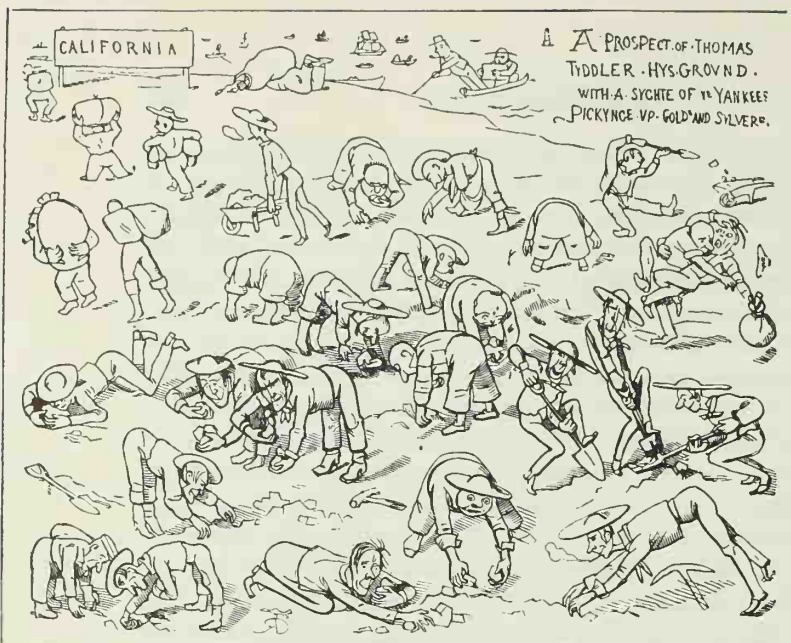 CALIFORNIA
A A PROSPECT.OF.THOMAS
TYDDLER.HYS.GROVND.
WITH.A.SYGHTE OF Ye YANKEES
PICKYNGE.VP.GOLDe AND SYLVERe.